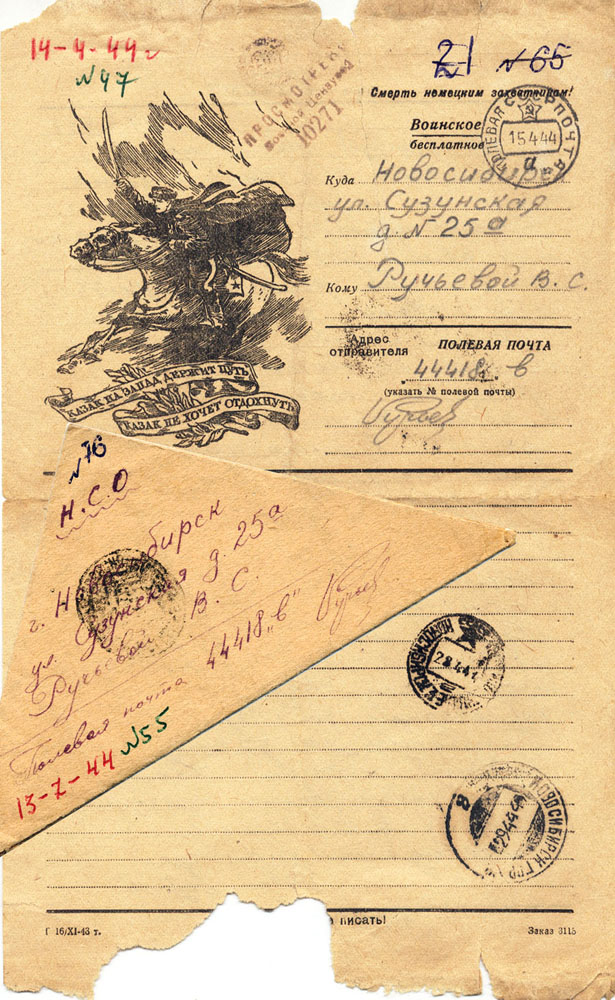 14-4-44 г
N47
21 N65
ПРОСМОТРЕНО
Военной Цензурой
10271
Смерть немецким захватчикам!
Воинское
бесплатное
ПОЛЕВАЯ ПОЧТА
15.4.44
Куда Новосибирск
ул. Сузунская
д. N 25а
Кому Ручьевой В. С.
Адрес
отправителя
ПОЛЕВАЯ ПОЧТА
44418 в
(указать № полевой почты)
Ручьев
КАЗАК НА ЗАПАД ДЕРЖИТ ПУТЬ,
КАЗАК НЕ ХОЧЕТ ОТДОХНУТЬ
N76
Н.С.О
г. Новосибирск
ул. Сузунская д. 25а
Ручьевой В. С.
Полевая почта 44418 „в" Ручьев
13-7-44 N55
НОВОСИБИРСК
28.4.44
НОВОСИБИРСК
29.4.44
8
писать!
Г 16/XI-43 г.
Заказ 3115